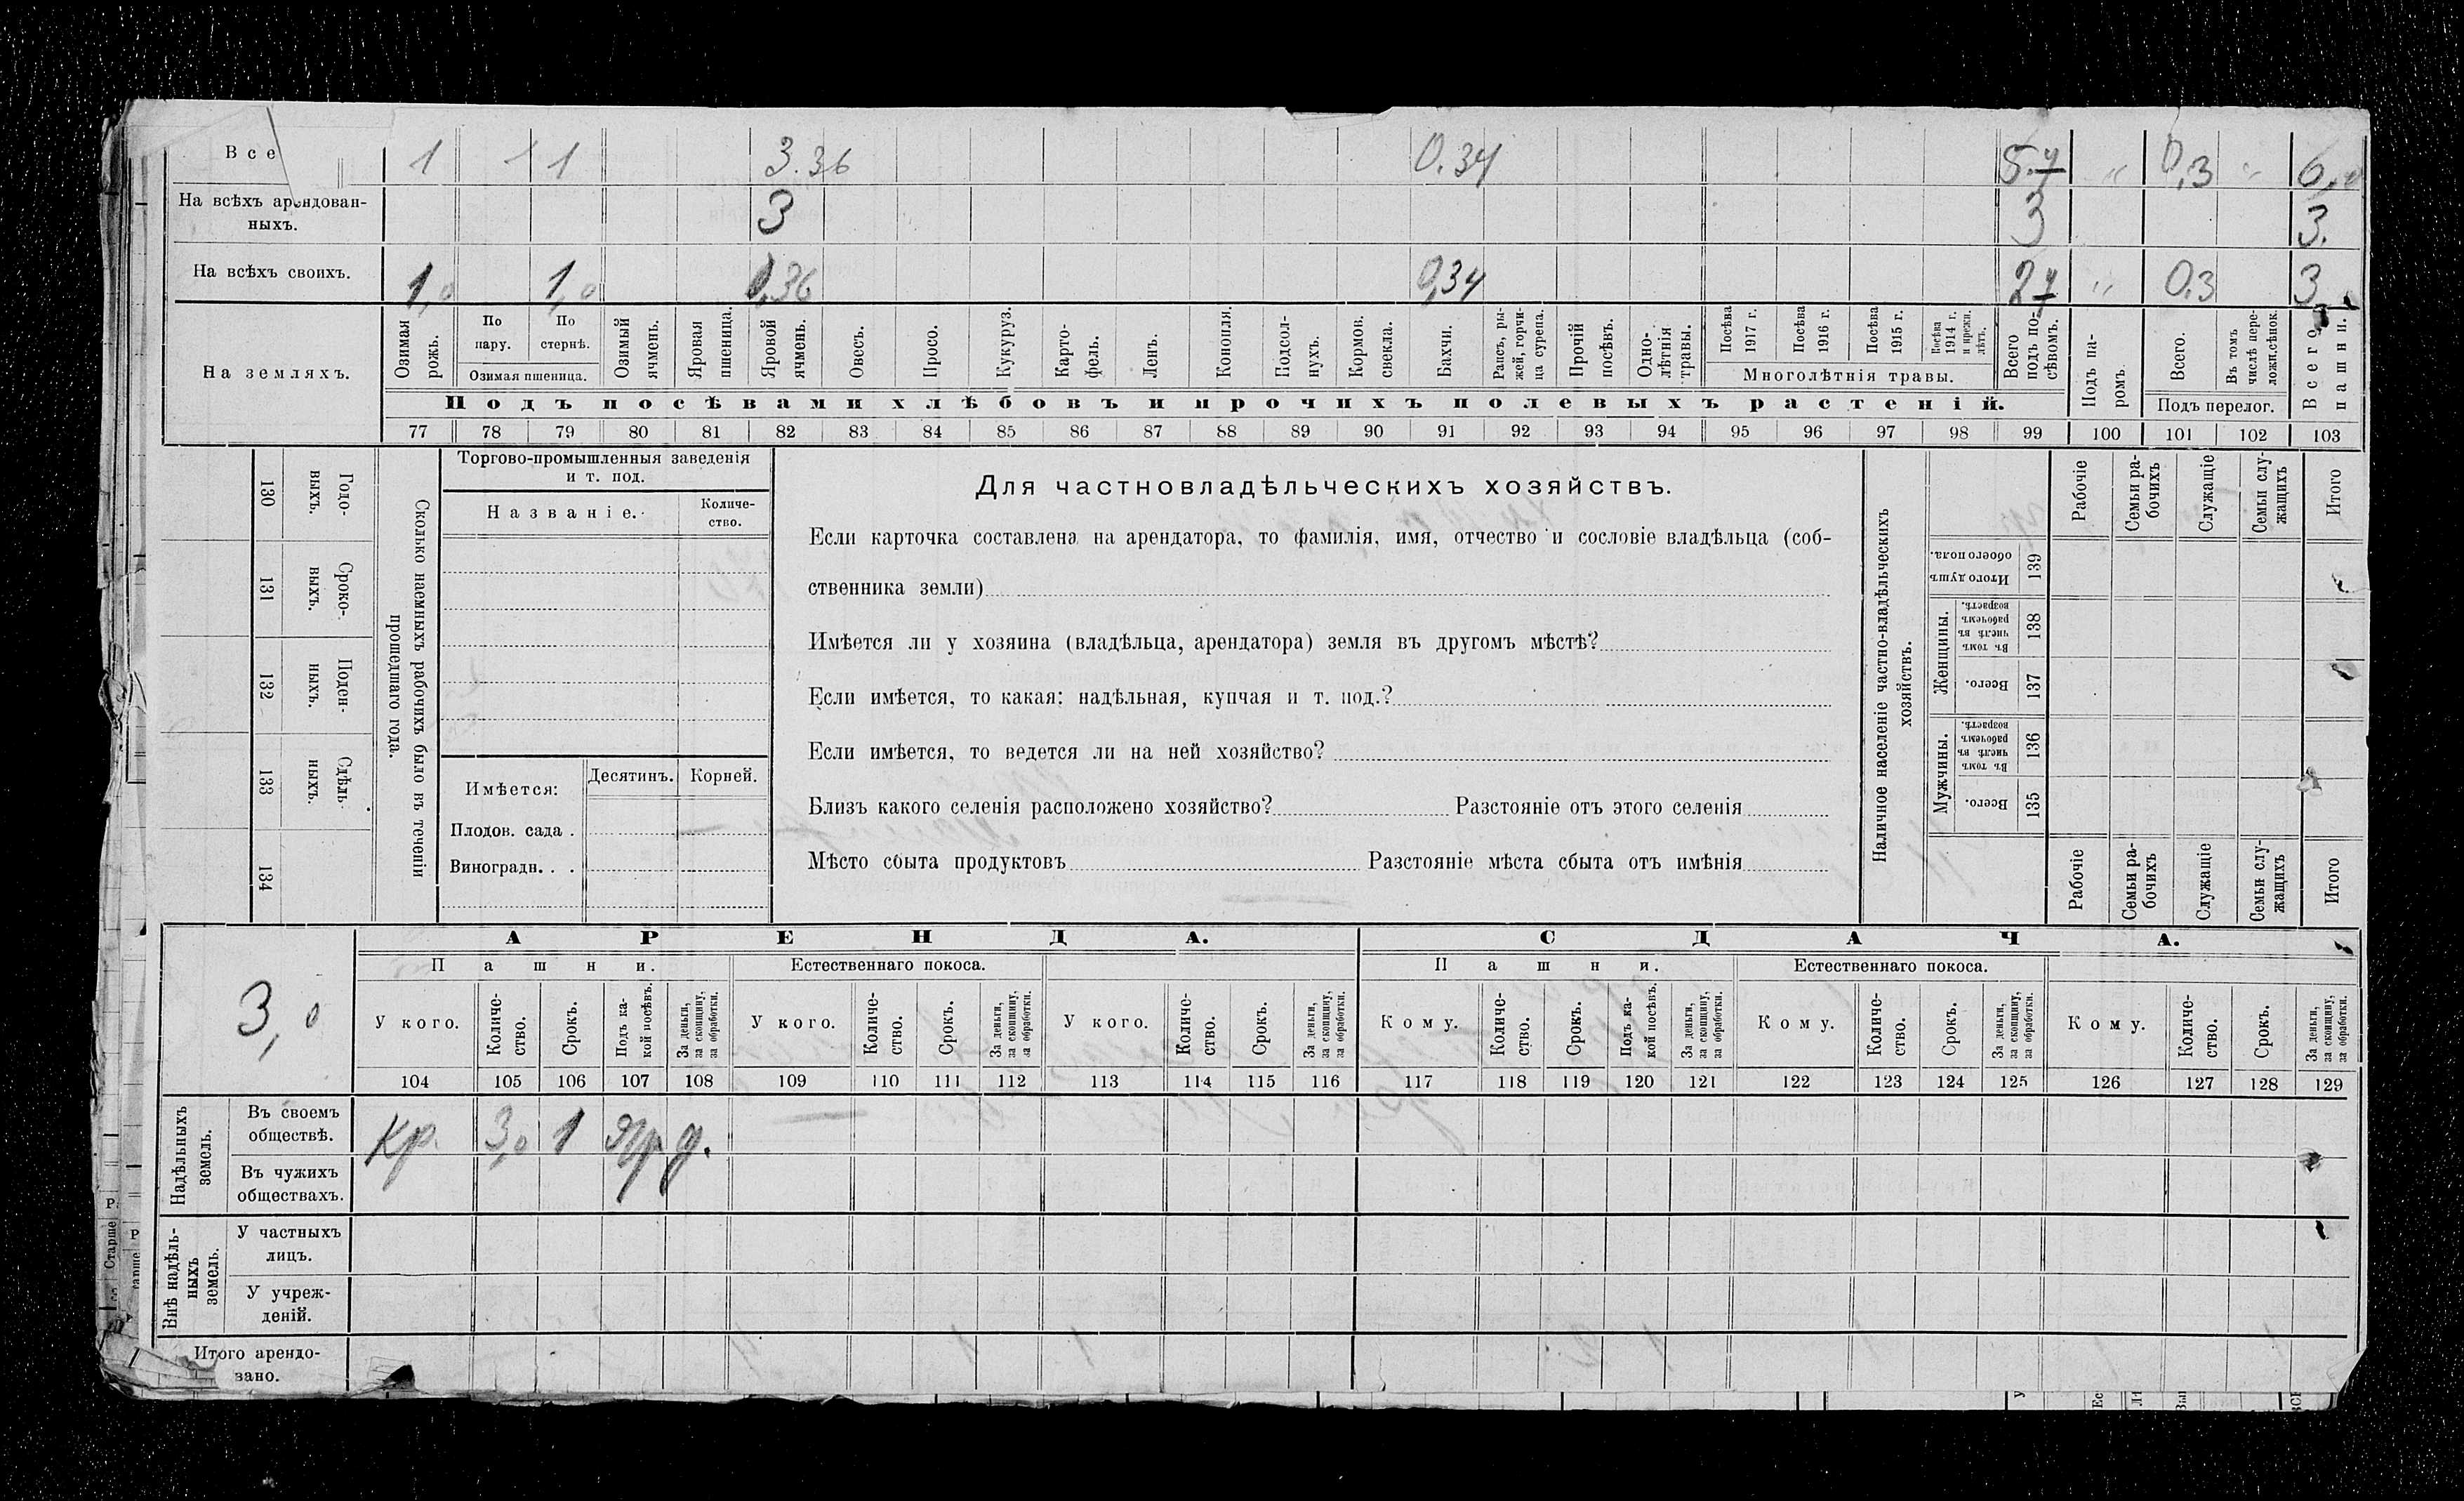 Все 1 1 1 3.36 0.34 0.3 6,0
На всѣхъ арендован-
ныхъ. 3 3 3.
На всѣхъ своихъ. 1,0 1,0 0,36 0,34 0.3 3,
На земляхъ.
Озимая рожь.
По пару.
По стернѣ.
Озимая пшеница.
Озимый ячмень.
Яровая пшеница.
Яровой ячмень.
Овесъ.
Просо.
Кукуруз.
Карто-
фель.
Ленъ.
Конопля.
Подсол-
нухъ.
Кормов. свекла.
Бахчи.
Рапсъ, ры-
жей, горчи-
ца сурепа.
Прочій посѣвъ.
Одно-
лѣтнія травы.
Посѣва 1917 г.
Посѣва 1916 г.
Посѣва 1915 г.
Посѣва 1914 г. и прежн. лѣтъ.
Многолѣтнія травы.
Всего подъ по-
сѣвомъ.
Подъ па-
ромъ.
Всего.
Въ томъ числѣ пере-
ложн.сѣнок.
Подъ перелог.
Всего пашни.
Подъ посѣвами хлѣбовъ и прочихъ полевыхъ растеній.
77 78 79 80 81 82 83 84 85 86 87 88 89 90 91 92 93 94 95 96 97 98 99 100 101 102 103
Сколько наемныхъ рабочихъ было въ теченіи
прошедшаго года.
Годо-
выхъ.
130
Сроко-
выхъ.
131
Поден-
ныхъ.
132
Сдѣль-
ныхъ.
133
134
Торгово-промышленныя заведенія
и т. под.
Названіе.
Количе-
ство.
Имѣется:
Десятинъ. Корней.
Плодов. сада .
Виноградн. . .
Для частновладѣльческихъ хозяйствъ.
Если карточка составлена на арендатора, то фамилія, имя, отчество и сословіе владѣльца (соб-
ственника земли)
Имѣется ли у хозяина (владѣльца, арендатора) земля въ другомъ мѣстѣ?
Если имѣется, то какая: надѣльная, купчая и т. под.?
Если имѣется, то ведется ли на ней хозяйство?
Близъ какого селенія расположено хозяйство? Разстояніе отъ этого селенія
Мѣсто сбыта продуктовъ Разстояніе мѣста сбыта отъ имѣнія
Наличное населеніе частно-владѣльческихъ
хозяйствъ.
Рабочіе
Семьи ра-
бочихъ
Служащіе
Семьи слу-
жащихъ
Итого
Итого душъ
обоего пола.
139
Женщины.
Въ томъ числѣ въ рабочемъ возрастѣ.
138
Всего.
137
Мужчины.
Въ томъ числѣ въ рабочемъ возрастѣ.
136
Всего.
135
Рабочіе
Семьи ра-
бочихъ
Служащіе
Семьи слу-
жащихъ
Итого
3,0
АРЕНДА. СДАЧА.
Пашни. Естественнаго покоса. Пашни. Естественнаго покоса.
У кого.
Количе-
ство.
Срокъ.
Подъ ка-
кой посѣвъ.
За деньги,
за скопщину,
за обработки.
У кого.
Количе-
ство.
Срокъ.
За деньги,
за скопщину,
за обработки.
У кого.
Количе-
ство.
Срокъ.
За деньги,
за скопщину,
за обработки.
Кому.
Количе-
ство.
Срокъ.
Подъ ка-
кой посѣвъ.
За деньги,
за скопщину,
за обработки.
Кому.
Количе-
ство.
Срокъ.
За деньги,
за скопщину,
за обработки.
Кому.
Количе-
ство.
Срокъ.
За деньги,
за скопщину,
за обработки.
104 105 106 107 108 109 110 111 112 113 114 115 116 117 118 119 120 121 122 123 124 125 126 127 128 129
Надѣльныхъ
земель.
Въ своемъ
обществѣ. Кр. 3,0 1 Яр д.
Въ чужихъ
обществахъ.
Внѣ надѣль-
ныхъ
земель.
У частныхъ
лицъ.
У учреж-
деній.
Итого арендо-
вано.